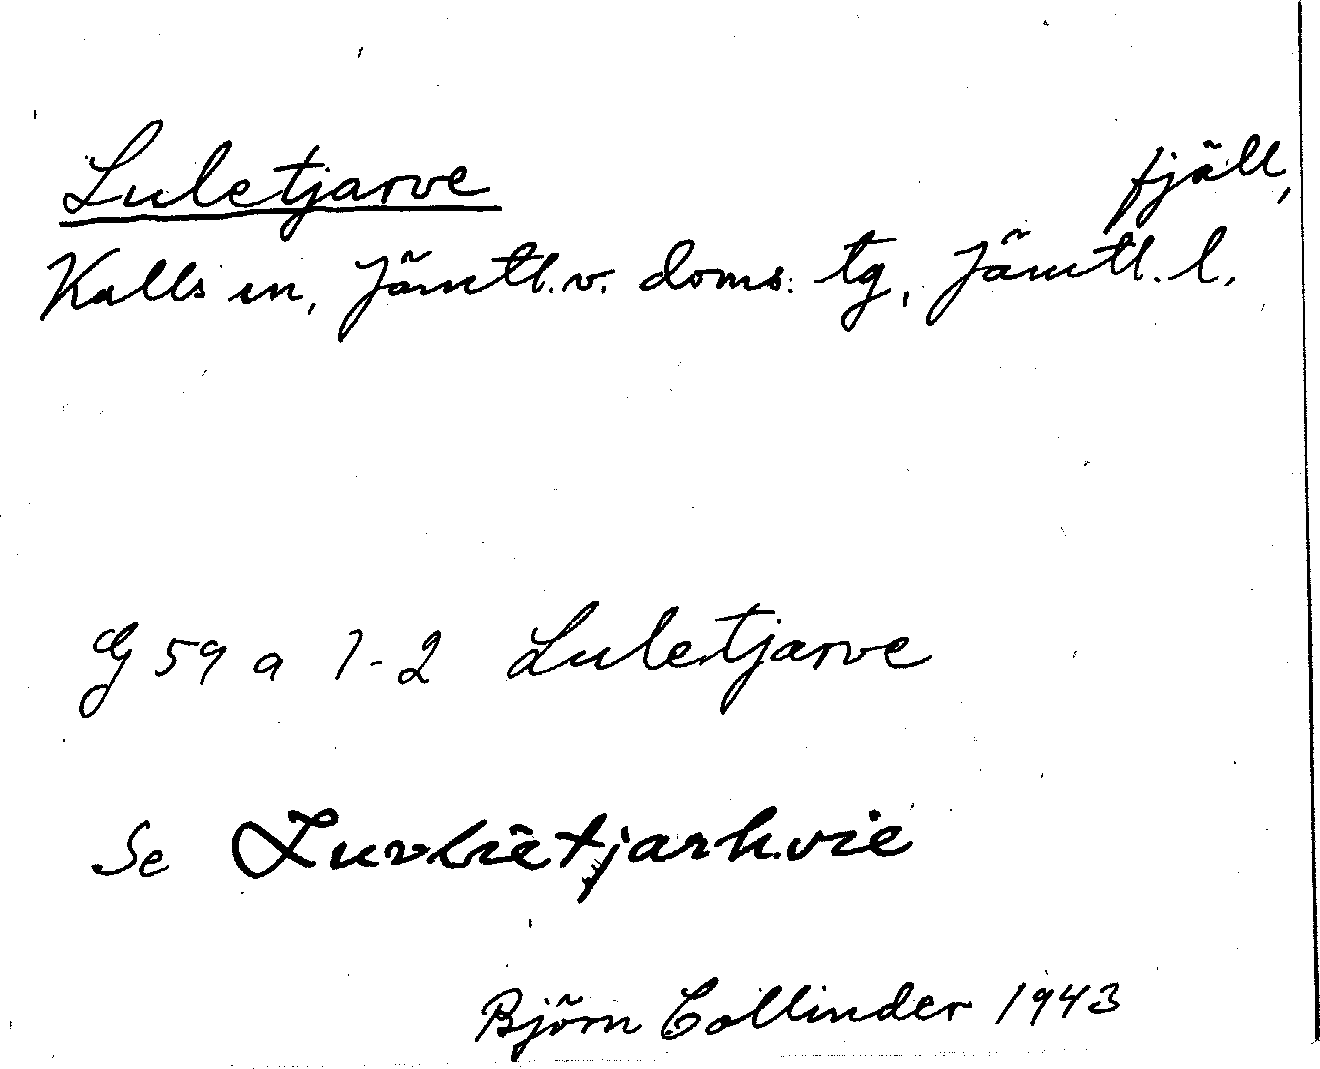 Luletjarve fjäll,
Kalls sn, Jämtl.v. doms. tg, Jämtl. l.
G 59 a 1-2 Luletjarve
Se Luvlietjarhvie
Björn Collinder 1943